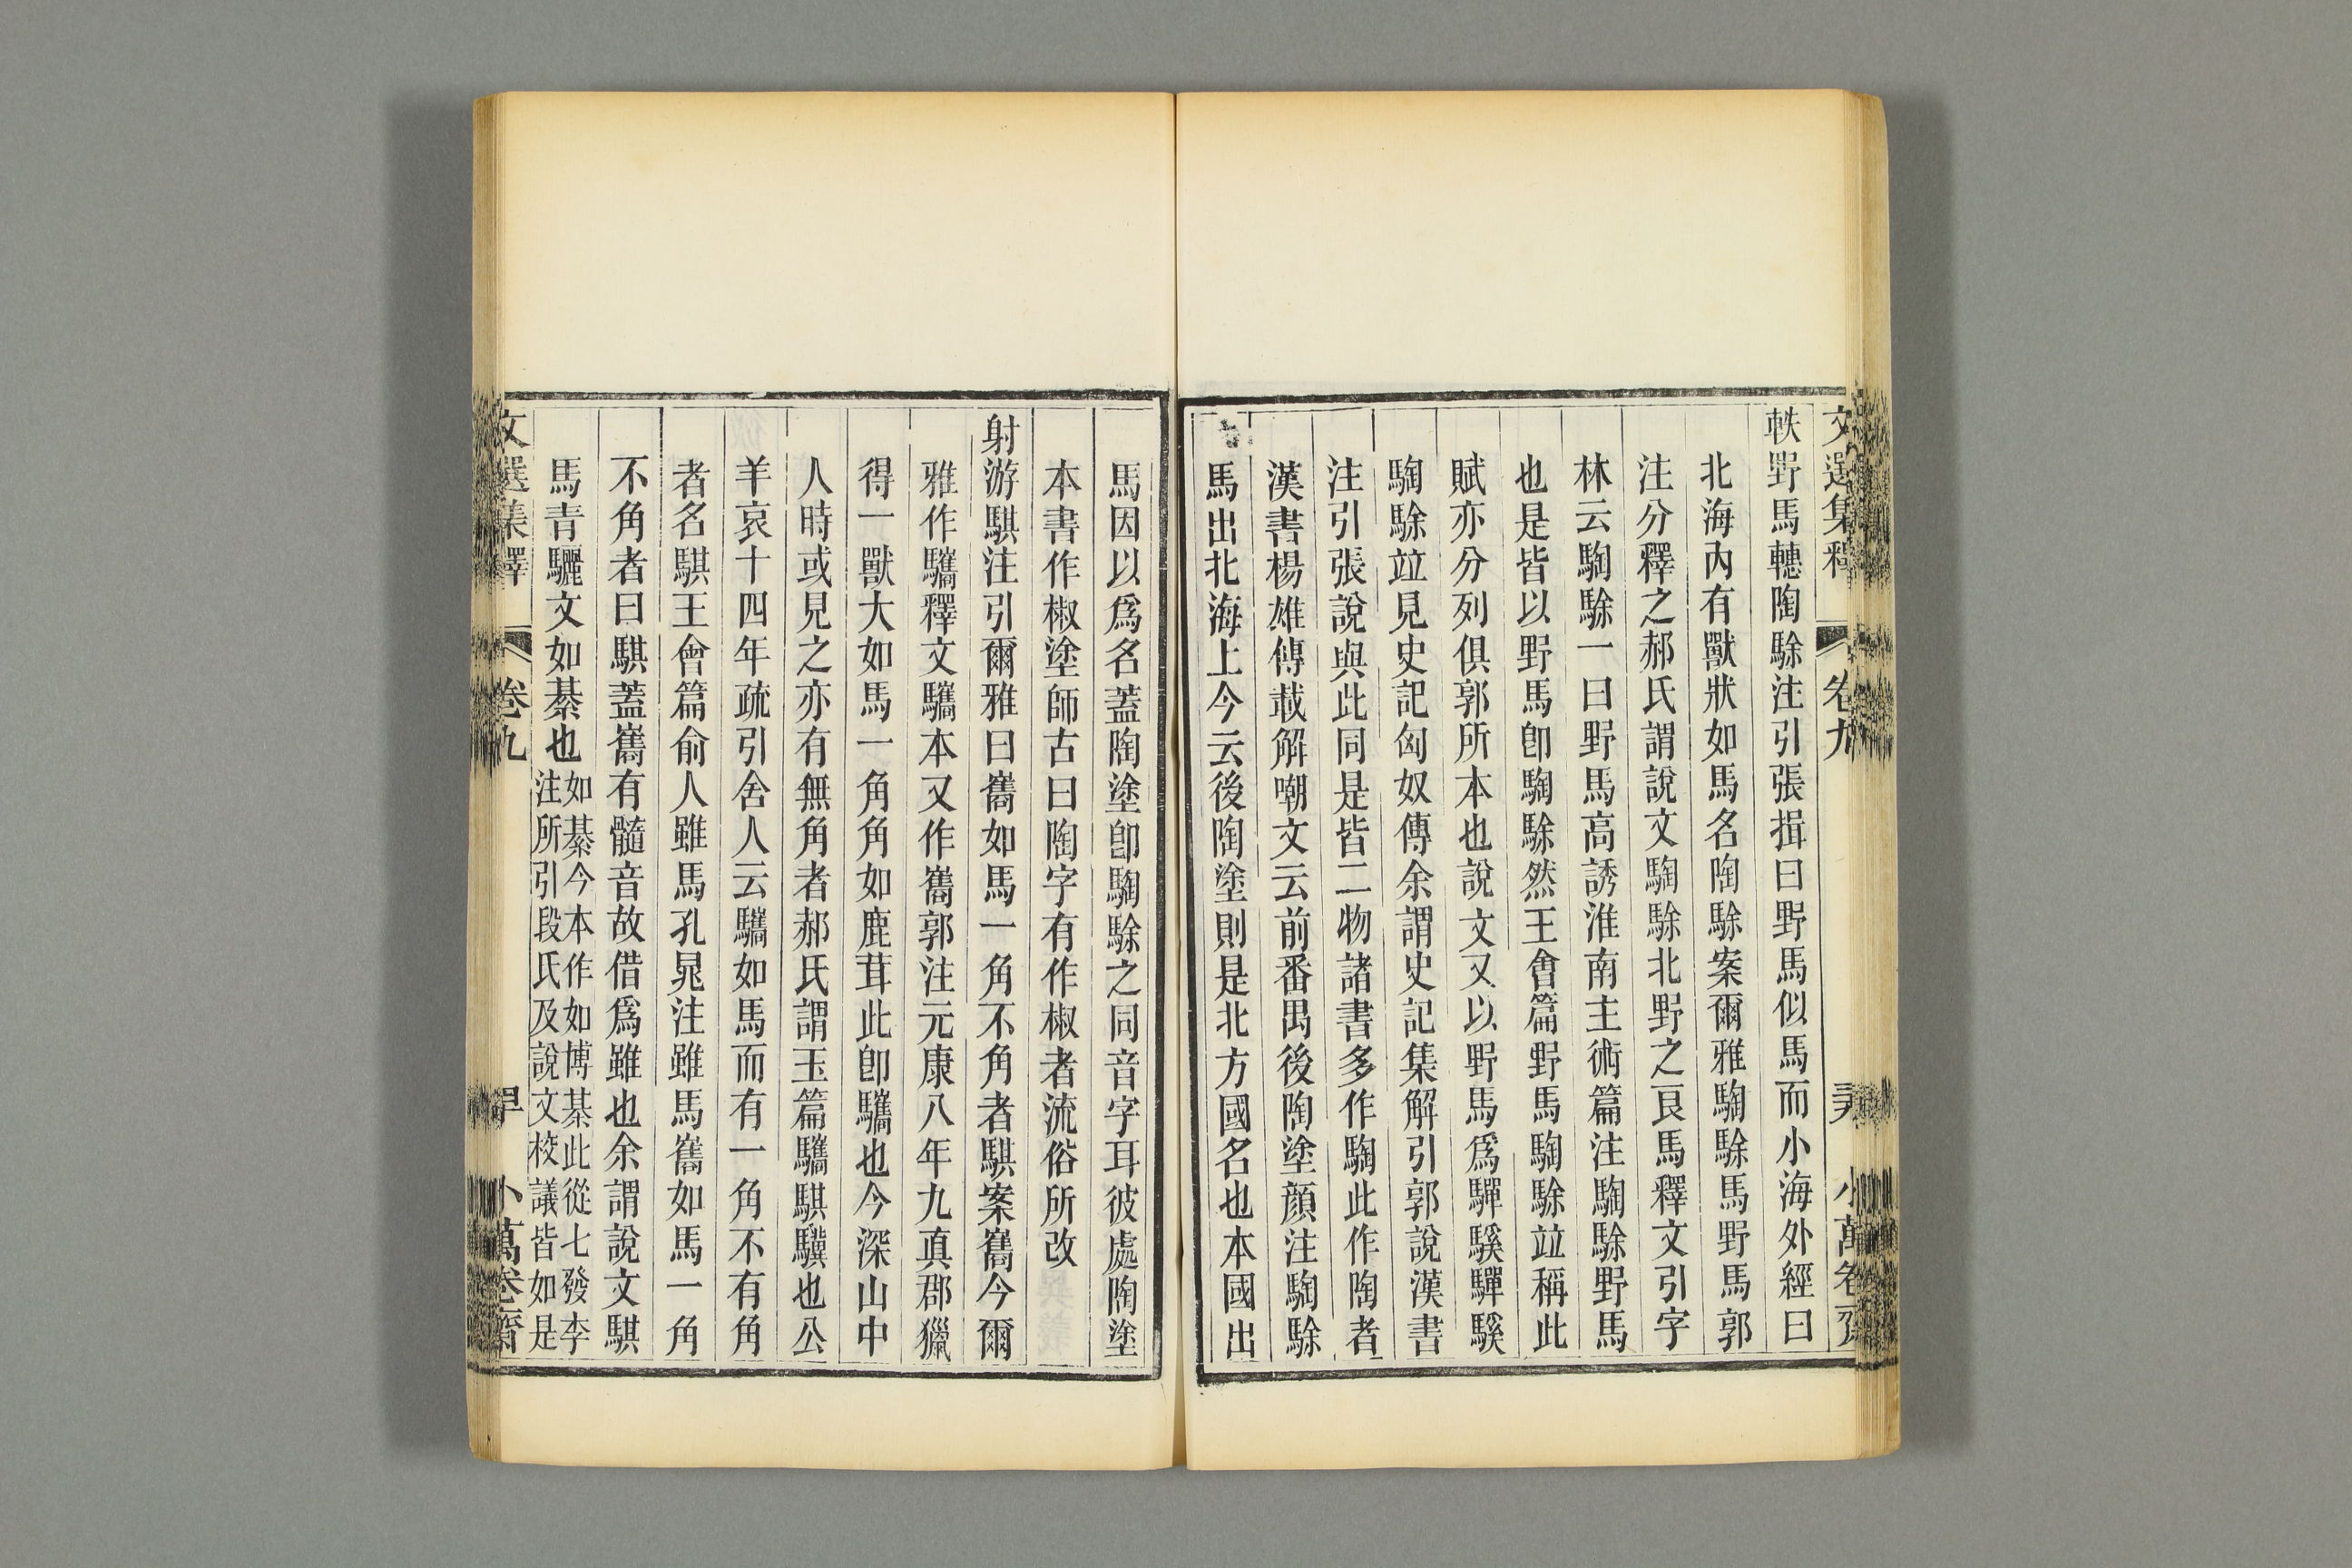 文選集釋 卷九 小萬卷齋
軼野馬轊陶駼注引張揖曰野馬似馬而小海外經曰
北海內有獸狀如馬名陶駼案爾雅騊駼馬野馬郭
注分釋之郝氏謂說文騊駼北野之良馬釋文引字
林云騊駼一曰野馬高誘淮南主術篇注騊駼野馬
也是皆以野馬卽騊駼然王會篇野馬騊駼竝稱此
賦亦分列俱郭所本也說文又以野馬爲驒騱驒騱
騊駼竝見史記匈奴傳余謂史記集解引郭說漢書
注引張說與此同是皆二物諸書多作騊此作陶者
漢書楊雄傳載解嘲文云前番禺後陶塗顏注騊駼
馬出北海上今云後陶塗則是北方國名也本國出
馬因以爲名蓋陶塗卽騊駼之同音字耳彼處陶塗
本書作椒塗師古曰陶字有作椒者流俗所改
射游騏注引爾雅曰巂如馬一角不角者騏案巂今爾
雅作驨釋文驨本又作巂郭注元康八年九真郡獵
得一獸大如馬一角角如鹿茸此卽驨也今深山中
人時或見之亦有無角者郝氏謂玉篇驨騏驥也公
羊哀十四年疏引舍人云驨如馬而有一角不有角
者名騏王會篇俞人雖馬孔晁注雖馬巂如馬一角
不角者曰騏蓋巂有髓音故借爲雖也余謂說文騏
馬青驪文如綦也如綦今本作如博綦此從七發李
注所引段氏及說文校議皆如是
文選集釋 卷九 小萬卷齋